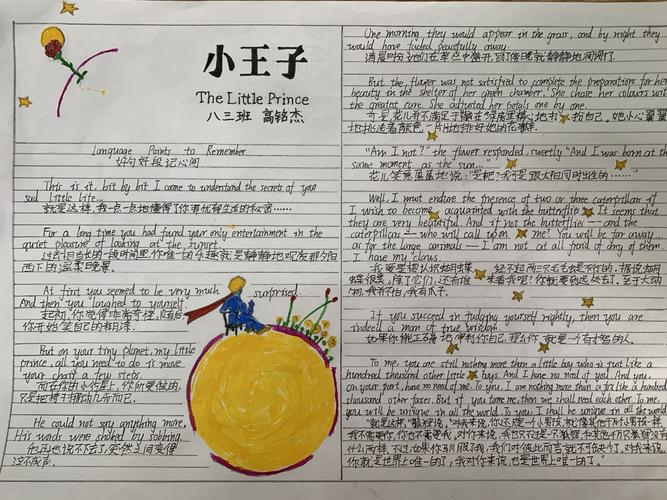 小王子
The Little Prince
八三班 高铭杰
Language Points to Remember
好句好段记心间
This is it, bit by bit I came to understand the secrets of your
sad little life...
就是这样,我一点一点地懂得了你那忧郁生活的秘密……
For a long time you had found your only entertainment in the
quiet pleasure of looking at the sunset.
过去相当长的一段时间里,你唯一的乐趣就是静静地观友那夕阳
西下的温柔晚景。
At first you seemed to be very much surprised.
And then you laughed to yourself.
起初,你觉得非常奇怪,随后,
你开始笑自己的糊涂。
But on your tiny planet, my little
prince, all you need to do is move
your chair a few steps.
而在你的小行星上,你所要做的,
只是把椅子挪动几步而已。
He could not say anything more.
His words were choked by sobbing.
他再也说不下去,突然之间变得
泣不成声。
One morning they would appear in the grass, and by night they
would have faded peacefully away.
清晨时分她们在草丛中绽开,到了傍晚就静静地凋谢了。
But the flower was not satisfied to complete the preparations for her
beauty in the shelter of her green chamber. She chose her colours with
the greatest care. She adjusted her petals one by one.
可是花儿并不满足于躲在绿房里精心地打扮自己,她小心翼翼
地挑选着颜色,一片片地排好她的花瓣。
"Am I not?" the flower responded, sweetly "And I was born at the
same moment as the sun..."
花儿笑意盈盈地说,"是吧?我可是跟太阳同时出生的……"
Well, I must endure the presence of two or three caterpillars if
I wish to become acquainted with the butterflies. It seems that
they are very beautiful. And if not the butterflies — and the
caterpillars — who will call upon me? You will be far away...
as for the large animals — I am not at all afraid of any of them.
I have my claws.
我要是想认识蝴蝶,经不起两三只毛毛虫是不行的。据说蝴
蝶很美。除了它们,还有谁来看我呢?你就要到远处去了,至于大动
物,我并不怕,我有爪子。
If you succeed in judging yourself rightly, then you are
indeed a man of true wisdom.
如果你能正确地评判你自己,那么你就是一个有才智的人。
To me, you are still nothing more than a little boy who is just like a
hundred thousand other little boys. And I have no need of you. And you,
on your part, have no need of me. To you, I am nothing more than a fox like a hundred
thousand other foxes. But if you tame me, then we shall need each other. To me,
you will be unique in all the world. To you, I shall be unique in all the world
"就是这样,"狐狸说,"对我来说,你还只是一个小男孩,就像其他千万个小男孩一样,
我不需要你,你也不需要我,对你来说,我也只不过是一只狐狸,和其他千万只狐狸没有
什么两样,不过,如果你驯服了我,我们对彼此而言就不可或缺了,对我来说,
你就是世界上唯一的了,我对你来说,也是世界上唯一的了。"